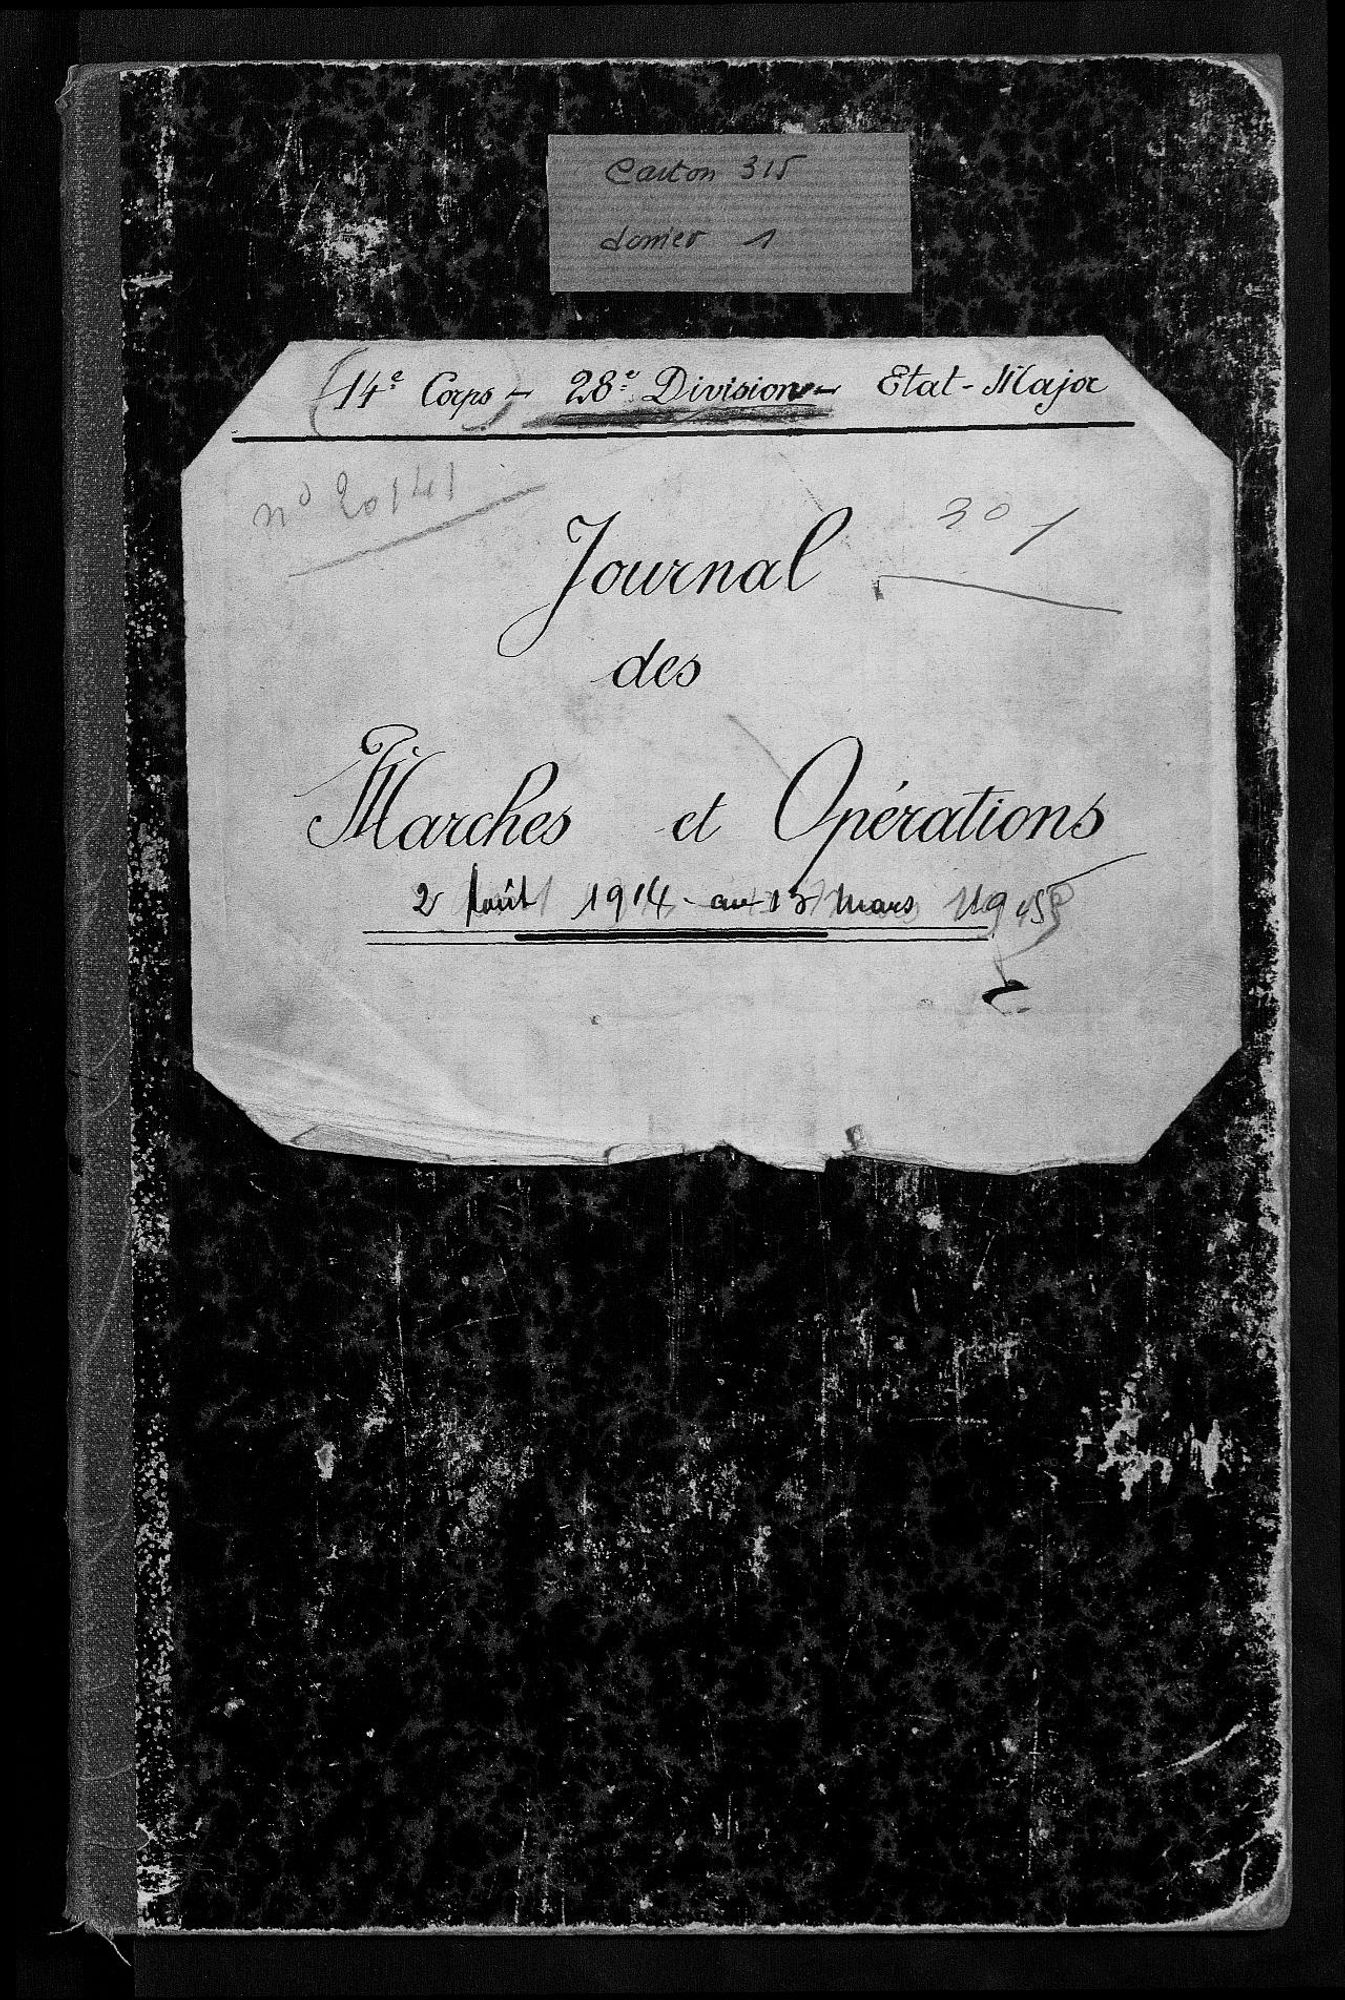 Carton 315
dossier 1
(14e Corps) - 28e Division - Etat-Major
no 20141
301
Journal
des
Marches et Opérations
2 Août 1914 au 15 Mars 1915